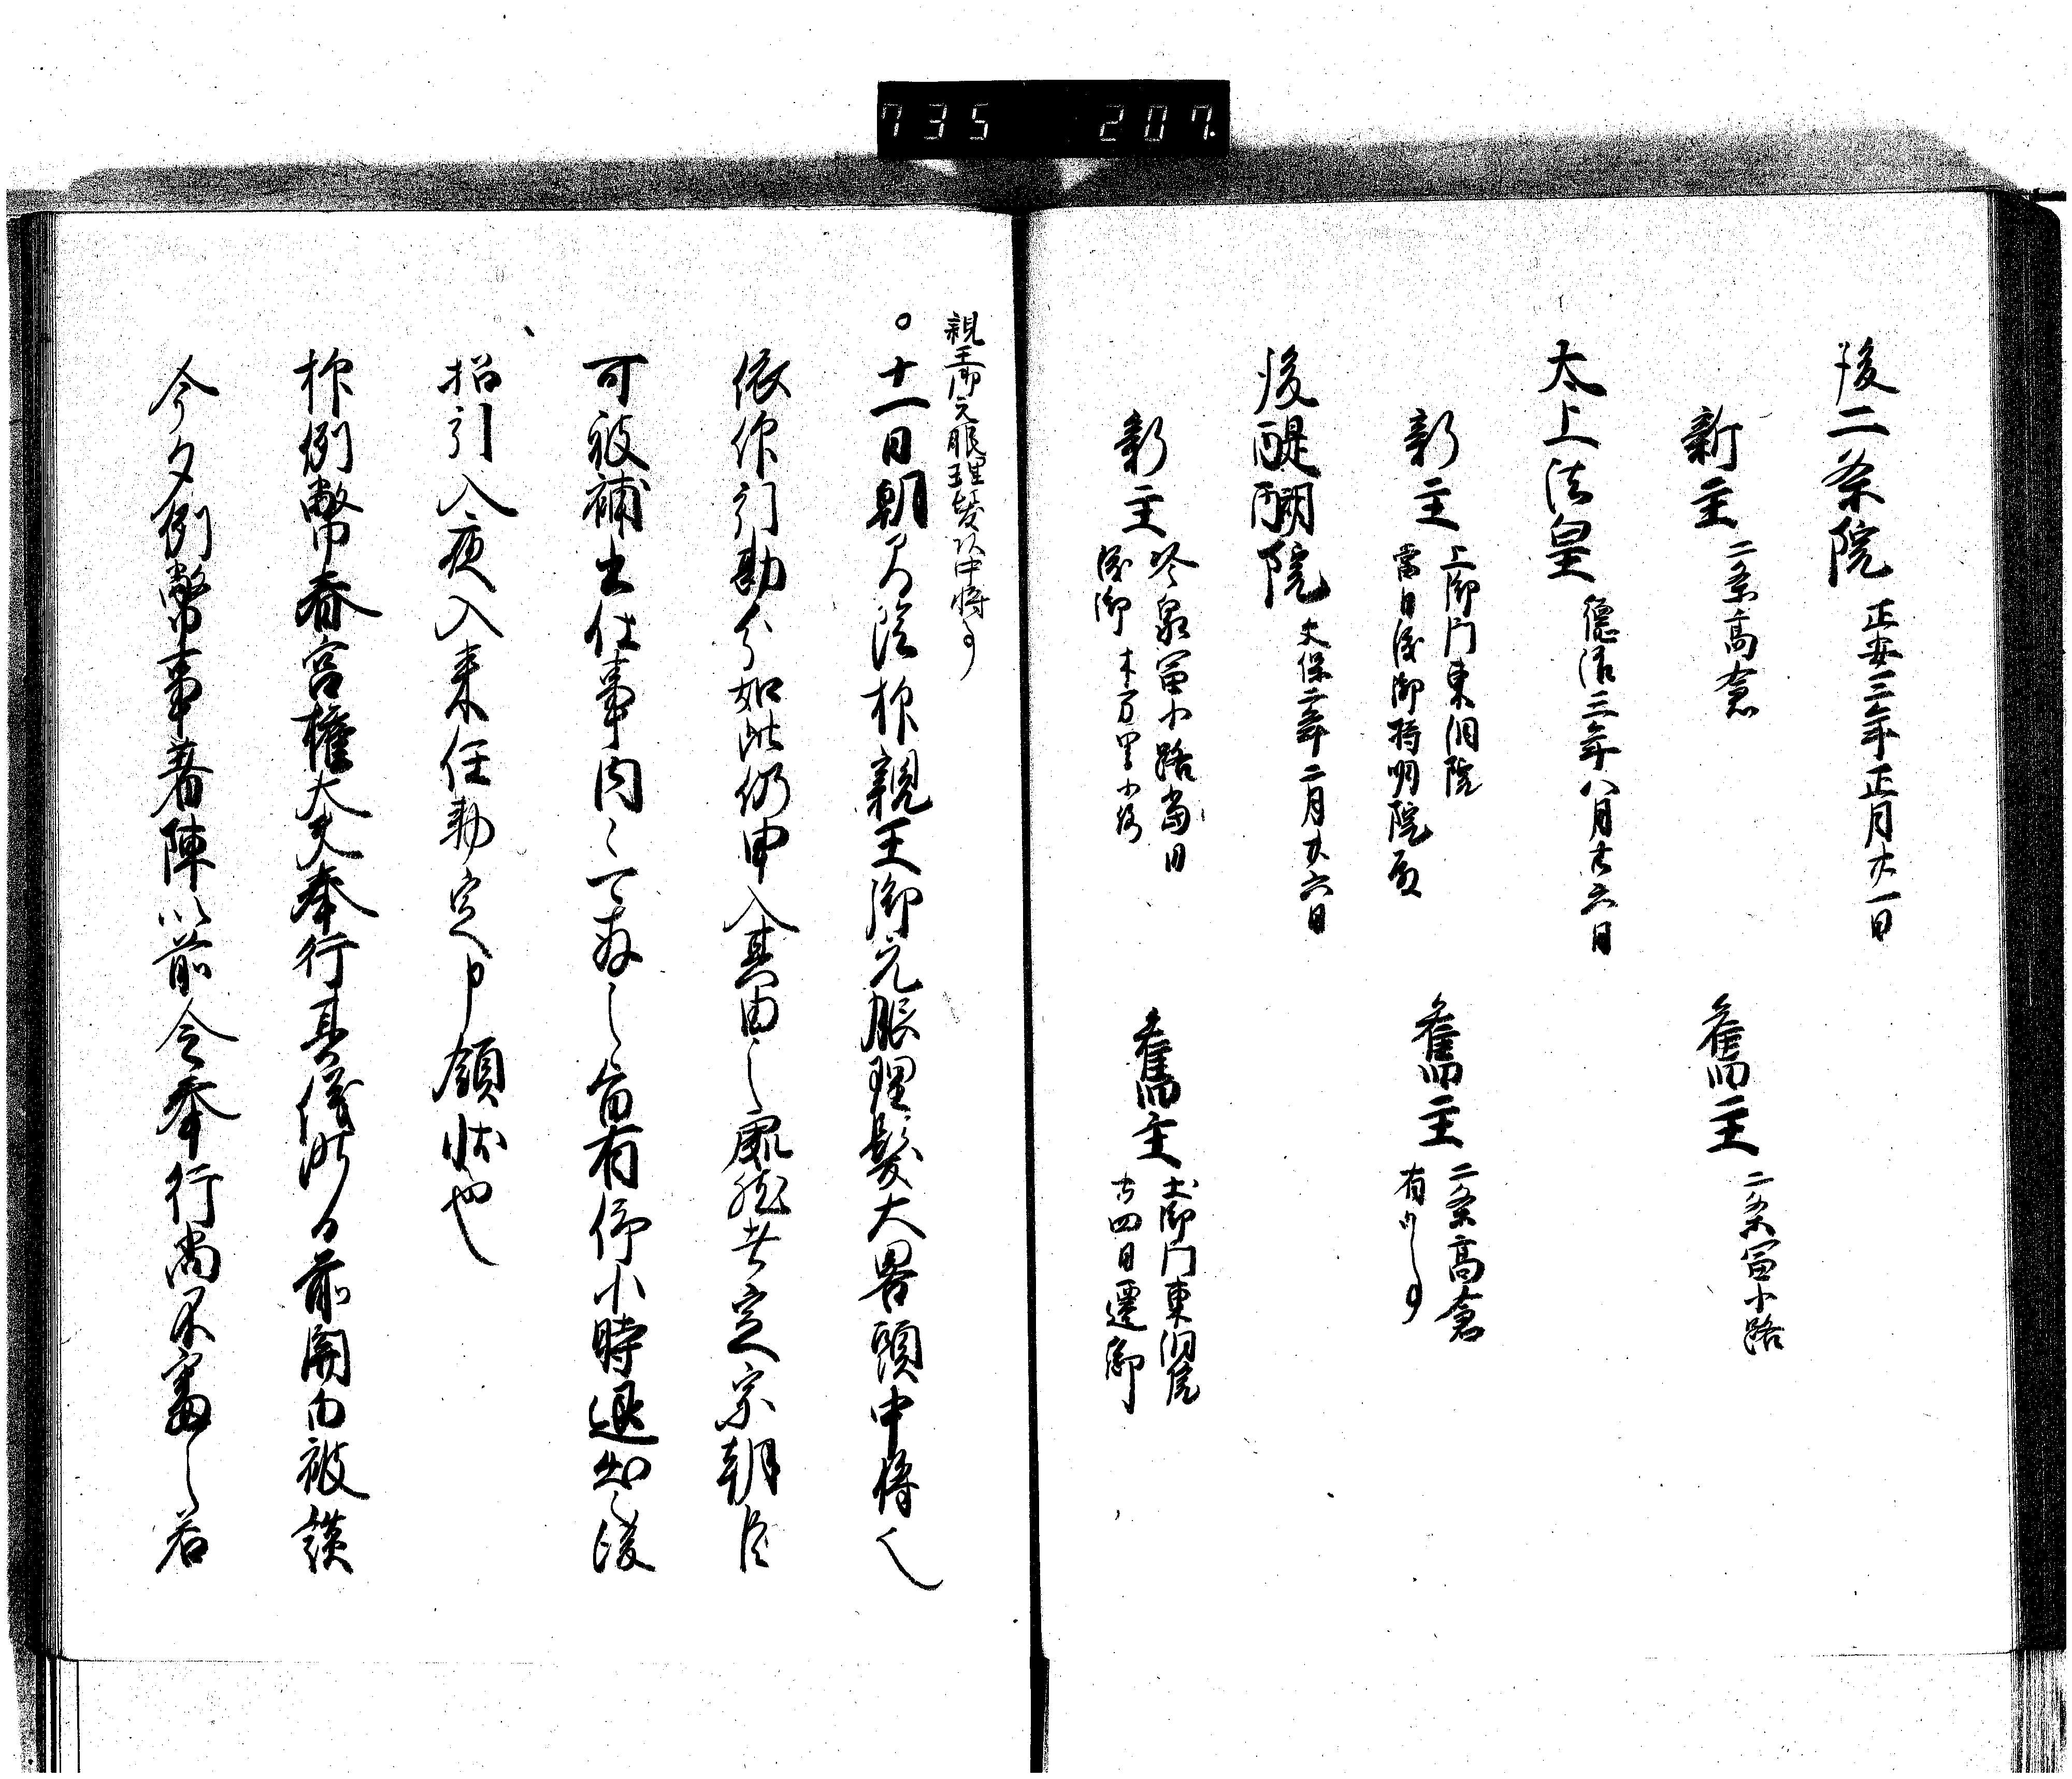 735 207
後二条院 正安三年正月廿一日
新主 二条高倉
舊主 二条富小路
太上法皇 徳治三年八月廿六日
新主 土御門東洞院
當日渡御持明院殿
舊主 二条高倉
有
後醍醐院 文保二年二月廿六日
新主 冷泉富小路當日
渡御 本万里小路
舊主 土御門東洞院
廿四日遷御
親王御元服理髪頭中将事
十一日朝間陰抑親王御元服理髪大畧頭中将也
依仰行勘分如此仍申入其由之處就其定宗朝臣
可被補出仕事内々可存之旨有仰小時退出之後
招引入夜入来任勅定申領状也
抑例幣春宮権大夫奉行其儀所日前関白被談
今夕例幣事著陣以前令奉行尚不審之若